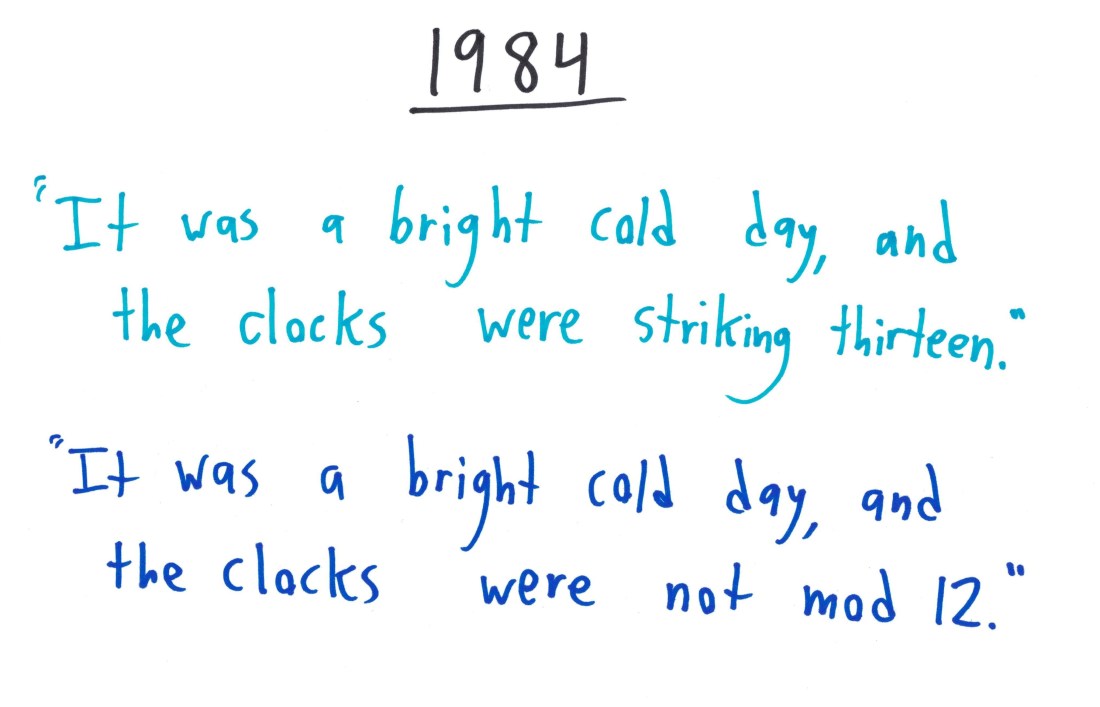 1984
"It was a bright cold day, and
the clocks were striking thirteen."
"It was a bright cold day, and
the clocks were not mod 12."